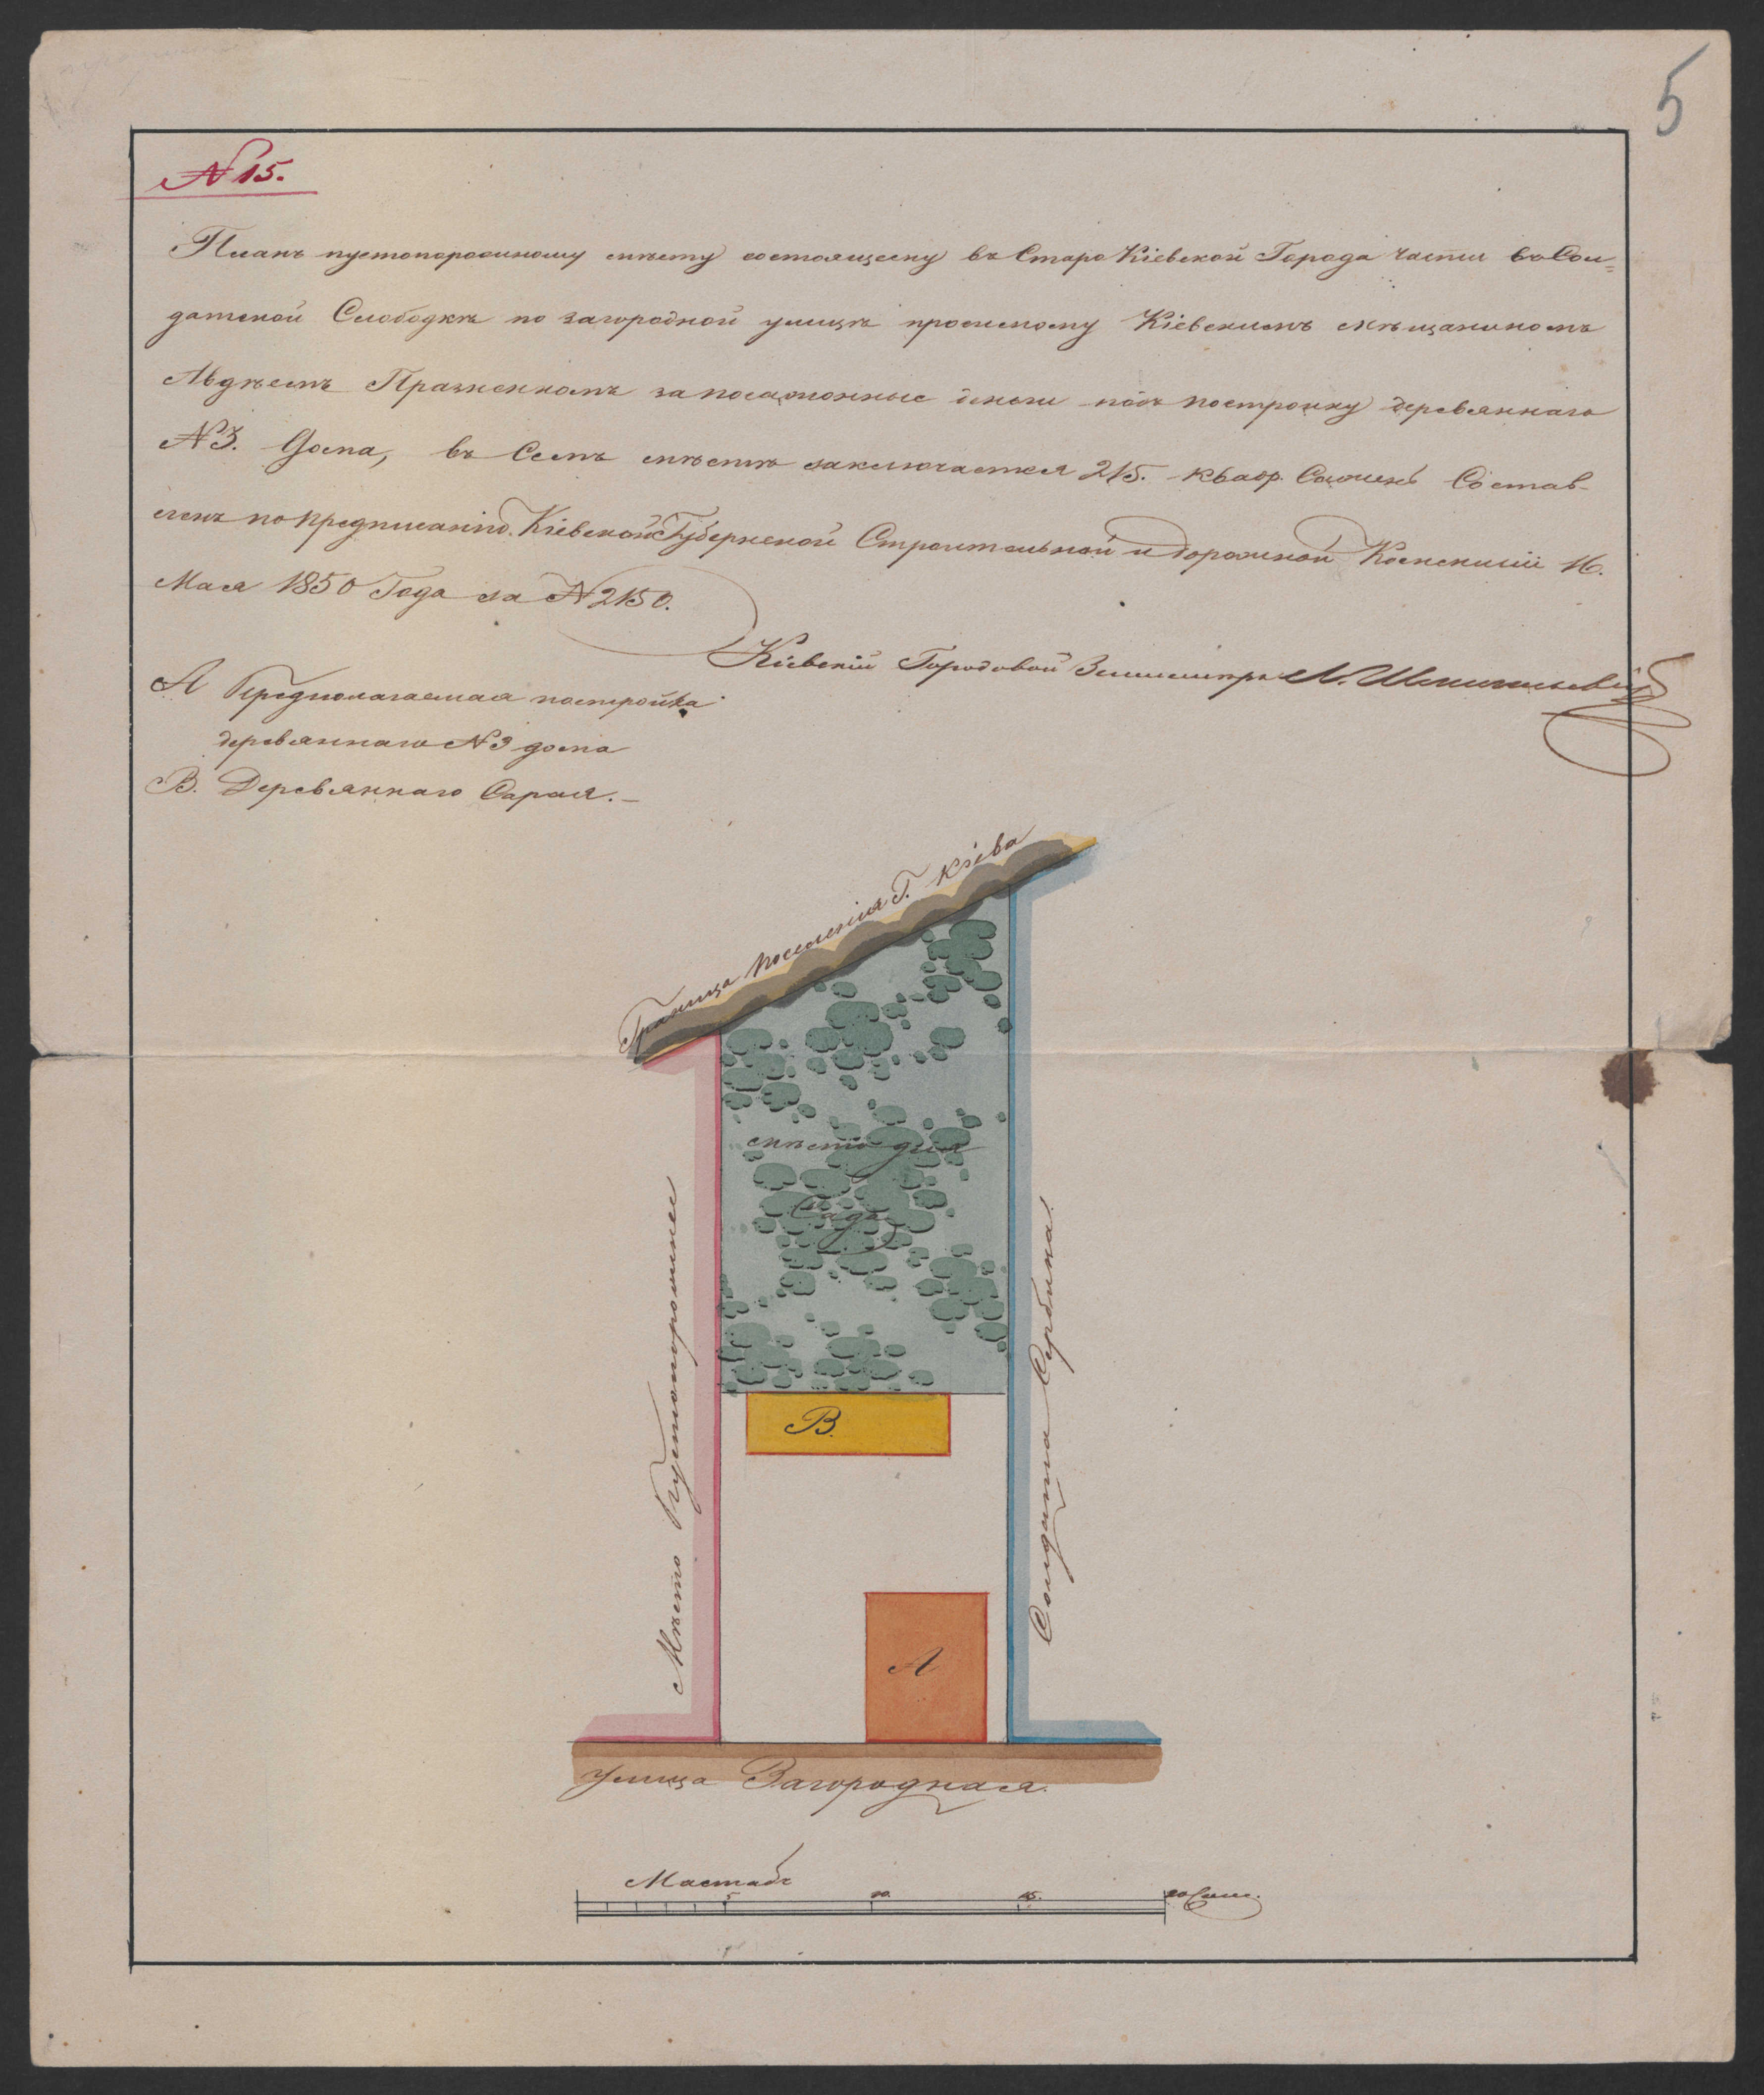 5
N 15.
Планъ пустопорожному мѣсту состоящему въ Старо Кіевской Города Части въ Сол=
датской Слободкѣ по загородной улицѣ просимому Кіевскимъ мѣщаниномъ
Авдѣемъ запосаженные деньги подъ постройку деревяннаго
N 3. Дома, въ Семъ мѣстѣ заключается 215. квадр. Сажень Состав-
ленъ по предписанію Кіевской Губернской Строительной и дорожной Комисіи 16.
Мая 1850 Года за N 2150.
Кіевскій Городовой Землемѣръ
А Предполагаемая постройка
деревяннаго N 3 дома
В. Деревяннаго Сарая.-
Граница поселенія Г. Кіева
мѣсто для
Сада
В.
А
Мѣсто Пустопорожнее
Солдата Сердюка.
улица Загородная.
Мастабъ
5 10. 15. 20 Саж.